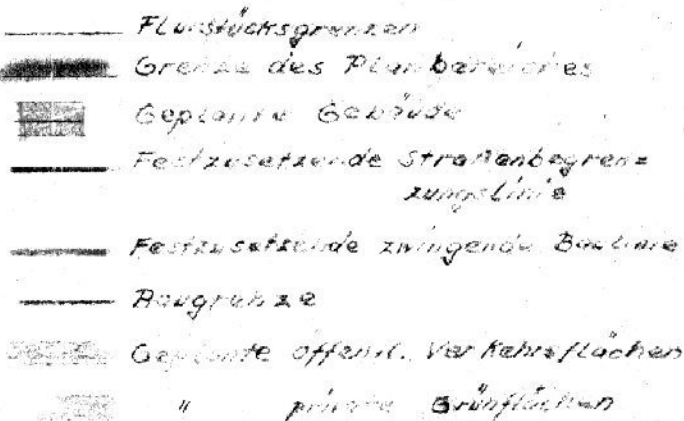 Flurstücksgrenzen
Grenze des Planbereiches
Geplante Gebäude
Festzusetzende Straßenbegren=
zungslinie
Festzusetzende zwingende Baulinie
Baugrenze
Geplante öffentl. Verkehrsflächen
" private Grünflächen